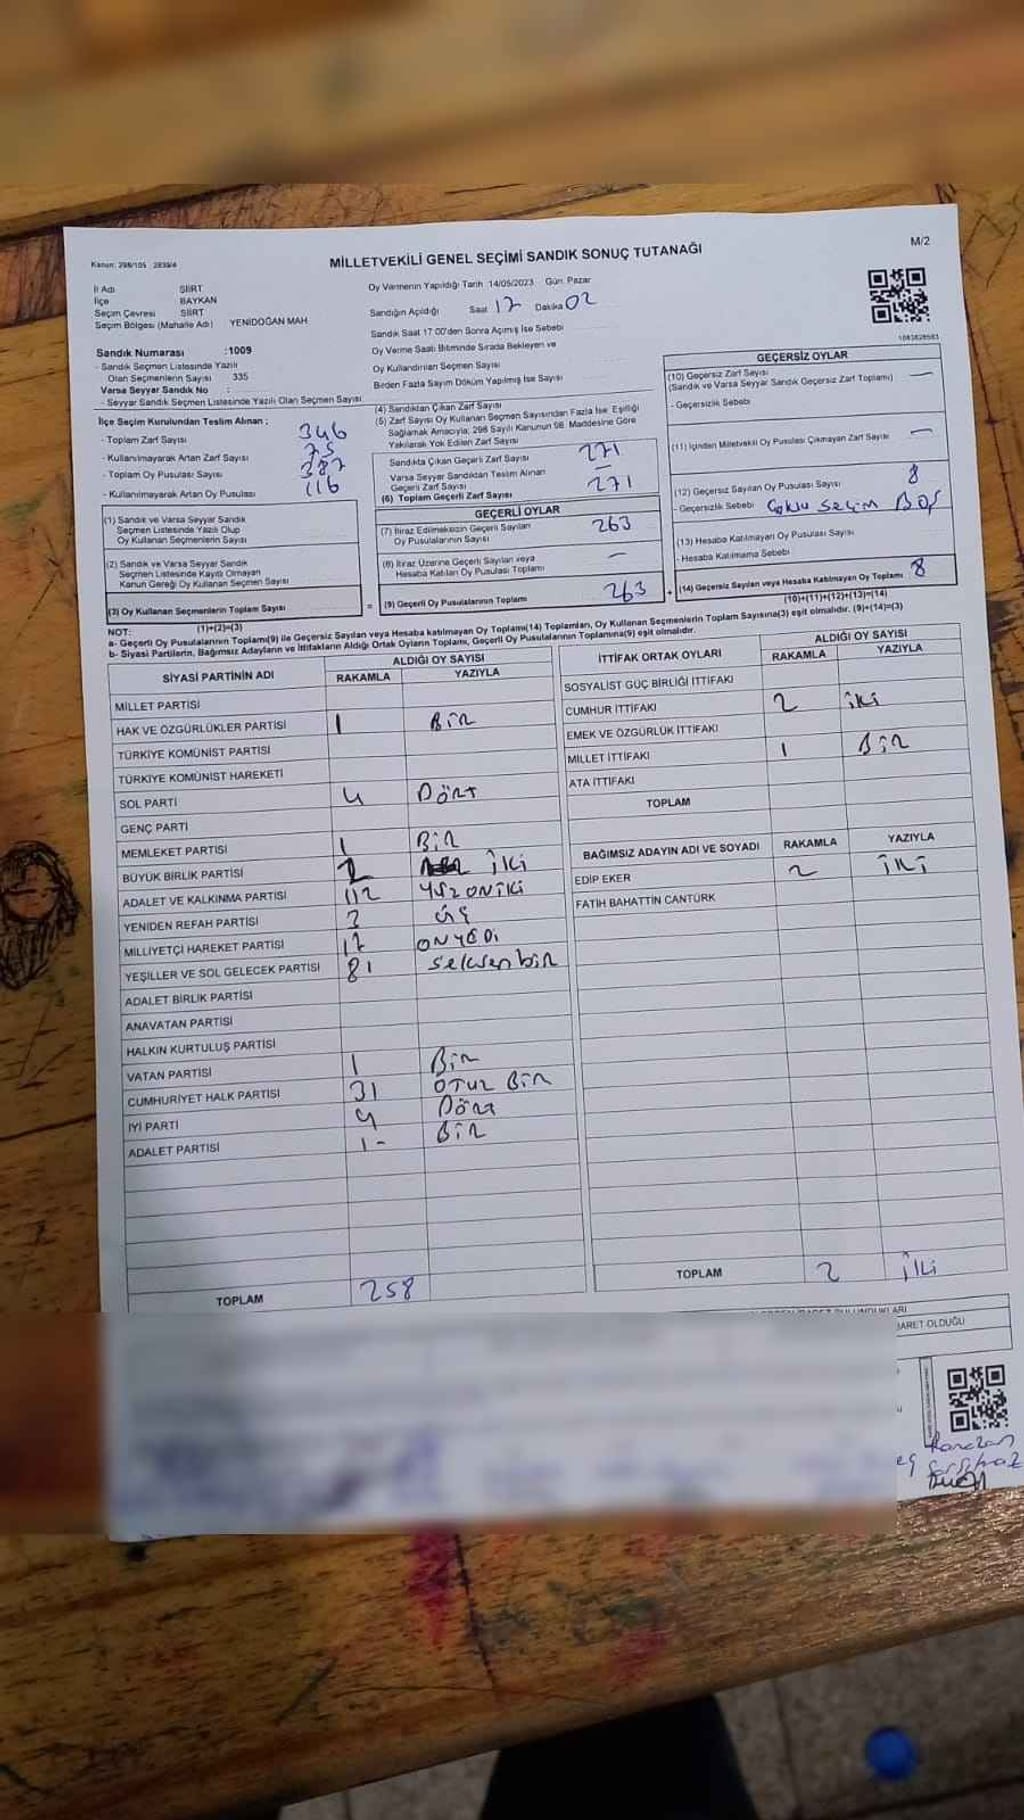 Kanun: 298/105 2839/4
MİLLETVEKİLİ GENEL SEÇİMİ SANDIK SONUÇ TUTANAĞI
M/2
İl Adı SİİRT
İlçe BAYKAN
Seçim Çevresi SİİRT
Seçim Bölgesi (Mahalle Adı) YENİDOĞAN MAH
Sandık Numarası :1009
- Sandık Seçmen Listesinde Yazılı
Olan Seçmenlerin Sayısı 335
Varsa Seyyar Sandık No :
- Seyyar Sandık Seçmen Listesinde Yazılı Olan Seçmen Sayısı
Oy Vermenin Yapıldığı Tarih :14/05/2023 Gün: Pazar
Sandığın Açıldığı Saat 17 Dakika 02
Sandık Saat 17:00'den Sonra Açımış İse Sebebi
Oy Verme Saati Bitiminde Sırada Bekleyen ve
Oy Kullandırılan Seçmen Sayısı
Birden Fazla Sayım Döküm Yapılmış İse Sayısı
İlçe Seçim Kurulundan Teslim Alınan :
- Toplam Zarf Sayısı 346
- Kullanılmayarak Artan Zarf Sayısı 75
- Toplam Oy Pusulası Sayısı 387
- Kullanılmayarak Artan Oy Pusulası 116
(1) Sandık ve Varsa Seyyar Sandık
Seçmen Listesinde Yazılı Olup
Oy Kullanan Seçmenlerin Sayısı
(2) Sandık ve Varsa Seyyar Sandık
Seçmen Listesinde Kayıtlı Olmayan
Kanun Gereği Oy Kullanan Seçmen Sayısı
(3) Oy Kullanan Seçmenlerin Toplam Sayısı
(1)+(2)=(3)
(4) Sandıktan Çıkan Zarf Sayısı
(5) Zarf Sayısı Oy Kullanan Seçmen Sayısından Fazla İse, Eşitliği
Sağlamak Amacıyla, 298 Sayılı Kanunun 98. Maddesine Göre
Yakılarak Yok Edilen Zarf Sayısı
Sandıkta Çıkan Geçerli Zarf Sayısı 271
Varsa Seyyar Sandıktan Teslim Alınan
Geçerli Zarf Sayısı —
(6) Toplam Geçerli Zarf Sayısı 271
GEÇERLİ OYLAR
(7) İtiraz Edilmeksizin Geçerli Sayılan
Oy Pusulalarının Sayısı 263
(8) İtiraz Üzerine Geçerli Sayılan veya
Hesaba Katılan Oy Pusulası Toplamı —
= (9) Geçerli Oy Pusulalarının Toplamı 263
GEÇERSİZ OYLAR
(10) Geçersiz Zarf Sayısı —
(Sandık ve Varsa Seyyar Sandık Geçersiz Zarf Toplamı)
- Geçersizlik Sebebi
(11) İçinden Milletvekili Oy Pusulası Çıkmayan Zarf Sayısı —
(12) Geçersiz Sayılan Oy Pusulası Sayısı 8
- Geçersizlik Sebebi Çoklu seçim BOŞ
(13) Hesaba Katılmayan Oy Pusulası Sayısı
- Hesaba Katılmama Sebebi
+ (14) Geçersiz Sayılan veya Hesaba Katılmayan Oy Toplamı 8
(10)+(11)+(12)+(13)=(14)
NOT:
a- Geçerli Oy Pusulalarının Toplamı(9) ile Geçersiz Sayılan veya Hesaba katılmayan Oy Toplamı(14) Toplamları, Oy Kullanan Seçmenlerin Toplam Sayısına(3) eşit olmalıdır. (9)+(14)=(3)
b- Siyasi Partilerin, Bağımsız Adayların ve İttifakların Aldığı Ortak Oyların Toplamı, Geçerli Oy Pusulalarının Toplamına(9) eşit olmalıdır.
SİYASİ PARTİNİN ADI ALDIĞI OY SAYISI
RAKAMLA YAZIYLA
MİLLET PARTİSİ
HAK VE ÖZGÜRLÜKLER PARTİSİ 1 BİR
TÜRKİYE KOMÜNİST PARTİSİ
TÜRKİYE KOMÜNİST HAREKETİ
SOL PARTİ 4 DÖRT
GENÇ PARTİ
MEMLEKET PARTİSİ 1 BİR
BÜYÜK BİRLİK PARTİSİ 2 İKİ
ADALET VE KALKINMA PARTİSİ 112 YÜZ ONİKİ
YENİDEN REFAH PARTİSİ 3 ÜÇ
MİLLİYETÇİ HAREKET PARTİSİ 17 ONYEDİ
YEŞİLLER VE SOL GELECEK PARTİSİ 81 seksen bir
ADALET BİRLİK PARTİSİ
ANAVATAN PARTİSİ
HALKIN KURTULUŞ PARTİSİ
VATAN PARTİSİ 1 BİR
CUMHURİYET HALK PARTİSİ 31 OTUZ BİR
İYİ PARTİ 4 DÖRT
ADALET PARTİSİ 1- BİR
TOPLAM 258
İTTİFAK ORTAK OYLARI ALDIĞI OY SAYISI
RAKAMLA YAZIYLA
SOSYALİST GÜÇ BİRLİĞİ İTTİFAKI
CUMHUR İTTİFAKI 2 iki
EMEK VE ÖZGÜRLÜK İTTİFAKI
MİLLET İTTİFAKI 1 BİR
ATA İTTİFAKI
TOPLAM
BAĞIMSIZ ADAYIN ADI VE SOYADI RAKAMLA YAZIYLA
EDİP EKER 2 İKİ
FATİH BAHATTİN CANTÜRK
TOPLAM 2 İKİ
BARET OLDUĞU